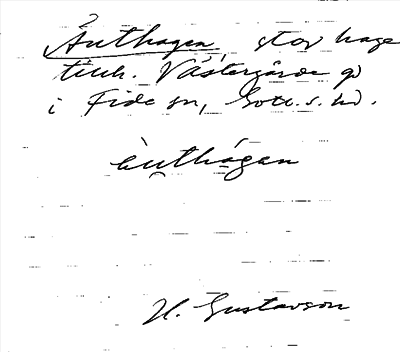 Änthagen, stor hage
tillh. Västergårde gd
i Fide sn, Gotl. s. hd.
ènthágen
H. Gustavson